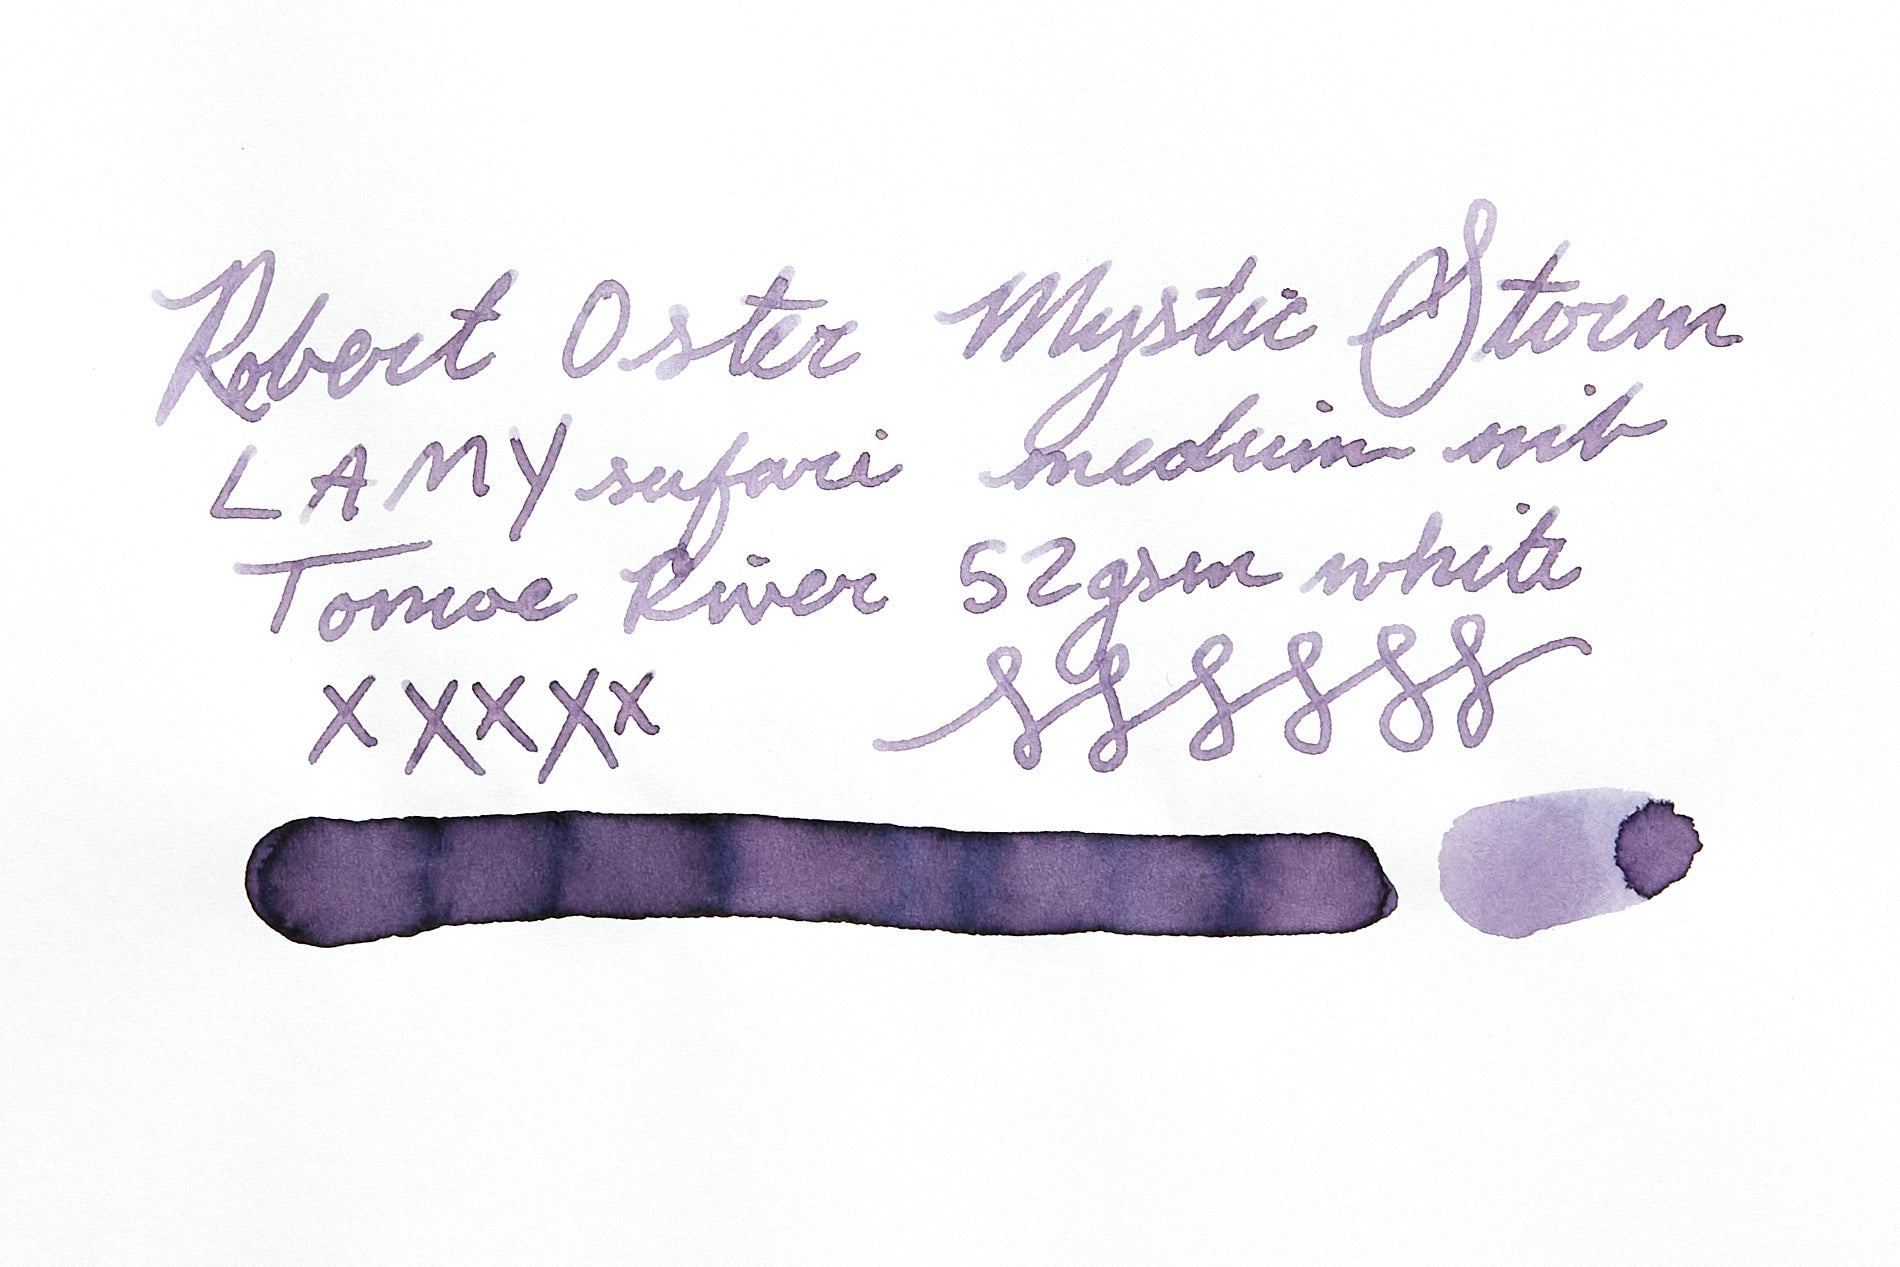 Robert Oster Mystic Storm
LAMY safari medium nib
Tomoe River 52gsm white
x x x x x